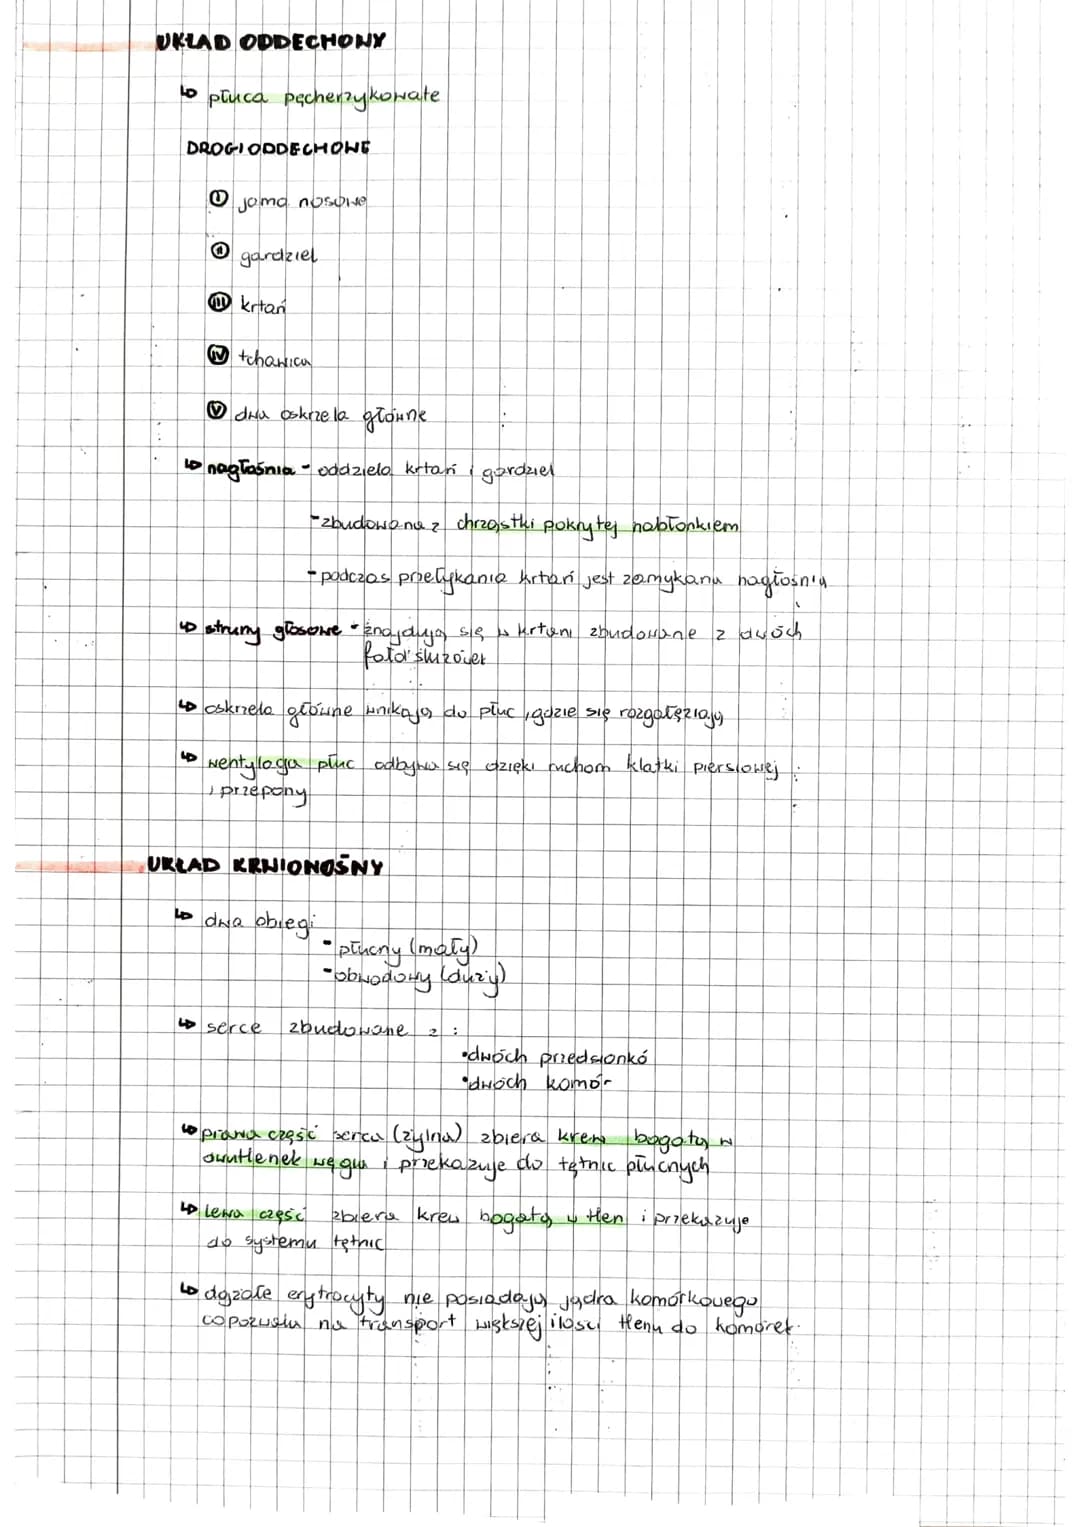 UKŁAD ODDECHOWY
↳ płuca pęcherzykowate
DROGI ODDECHOWE
I jama nosowa
II gardziel
III krtań
IV tchawica
V dwa oskrzela główne
↳ nagłośnia - oddziela krtań i gardziel
- zbudowana z chrząstki pokrytej nabłonkiem
- podczas przełykania krtań jest zamykana nagłośnią
↳ struny głosowe - znajdują się w krtani zbudowane z dwóch
fałd śluzówek
↳ oskrzela główne wnikają do płuc, gdzie się rozgałęziają
↳ wentylacja płuc odbywa się dzięki ruchom klatki piersiowej
i przepony
UKŁAD KRWIONOŚNY
↳ dwa obiegi
- płucny (mały)
- obwodowy (duży)
↳ serce zbudowane z :
• dwóch przedsionkó
• dwóch komór
↳ prawa część serca (żylna) zbiera krew bogatą w
dwutlenek węgla i przekazuje do tętnic płucnych
↳ lewa część zbiera krew bogatą w tlen i przekazuje
do systemu tętnic
↳ dojrzałe erytrocyty nie posiadają jądra komórkowego
co pozwala na transport większej ilości tlenu do komórek.